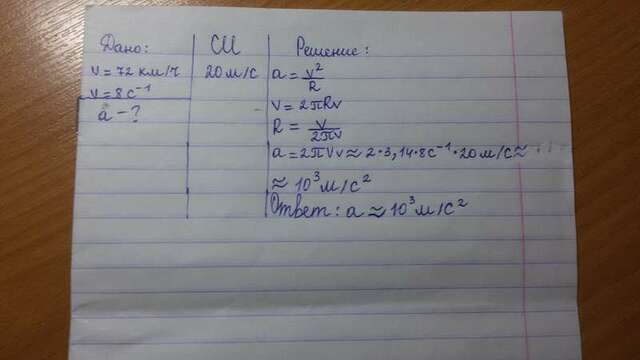 Дано:
v = 72 км/ч
v = 8 с⁻¹
a - ?
СИ
20 м/с
Решение:
a = v²/R
v = 2πRv
R = v/2πv
a = 2πVv ≈ 2·3,14·8с⁻¹·20м/с ≈
≈ 10³ м/с²
Ответ: a ≈ 10³ м/с²